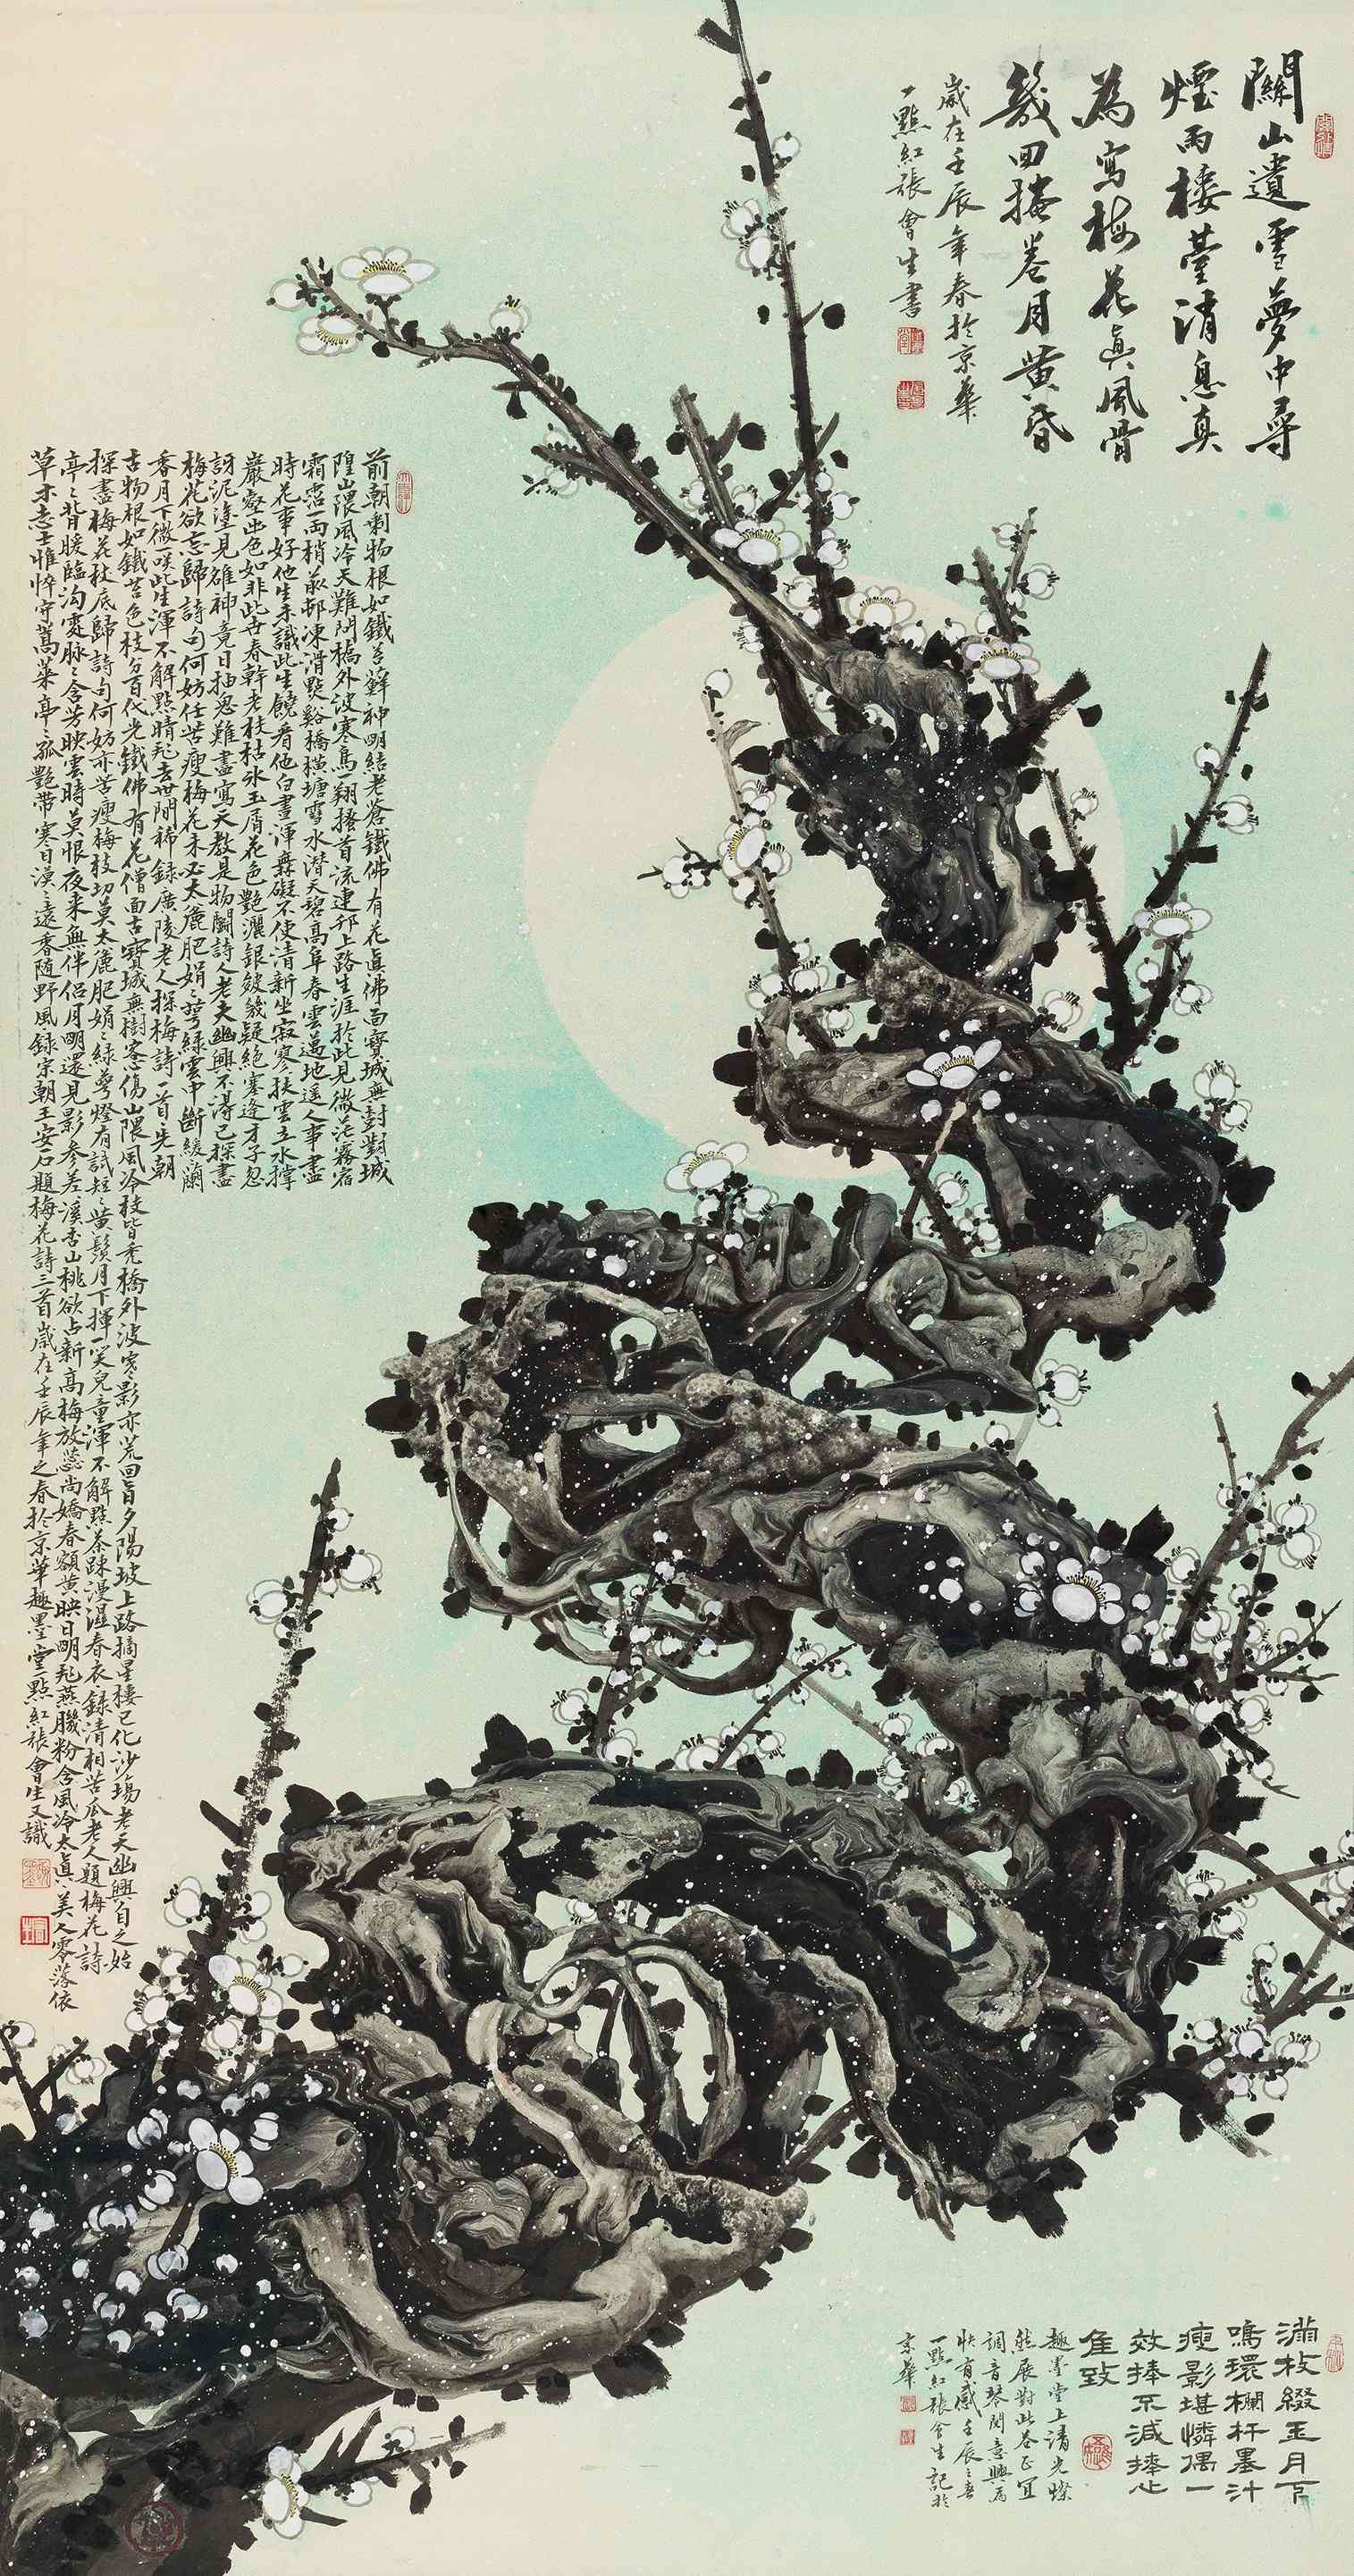 關山遺雪夢中尋
煙雨樓臺消息真
為寫梅花真風骨
幾回掩卷月黃昏
歲在壬辰年春於京華
一點紅張會生書
前朝剩物根如鐵苔蘚神明結老蒼鐵佛有花真佛面寶城無封對城
隍山隈風冷天難問橋外波寒鳥一翔搔首流連邗上路生涯於此見微茫霧宿
霜露一兩梢最邨凍滑點谿橋橫塘雪水潛天碧高阜春雲過地遙人事盡
時花事好他生未識此生饒看他白晝渾無礙不使清新坐寂寥扶雲立水撐
巖壑出色如非此古春幹老枝枯冰玉屑花色艷灑銀皴幾疑絕塞逢才子忽
訝泥塗見雒神竟日抽思難盡寫天教是物鬪詩人老夫幽興不得已探盡
梅花欲忘歸詩句何妨任苦瘦梅花未必太麤肥娟娟萼綠雲中斷緩蘭
香月下微一笑此生渾不解點睛飛去世間稀錄廣陵老人探梅詩一首先朝
古物根如鐵苔色枝分百代光鐵佛有花僧面古寶城無樹客心傷山隈風冷枝皆禿橋外波寒影亦荒回首夕陽坡上路摘星樓已化沙場老夫幽興自之始
探盡梅花杖底歸詩句何妨亦苦瘦梅枝切莫太麤肥娟娟綠萼燈有試短短黃鬚月下揮一笑兒童渾不解點茶踈漫溼春衣錄清相苦瓜老人題梅花詩
亭亭背暖臨溝處脉脉含芳映雲時莫恨夜來無伴侶月明還見影參差溪杏山桃欲占新高梅放蕊尚嬌春額黃映日明飛燕臙粉含風冷太真美人零落依
草木志士憔悴守蒿萊亭亭孤艷帶寒日漠漠遠香隨野風錄宗朝王安石題梅花詩三首歲在壬辰年之春於京華趣墨堂一點紅張會生又識
滿枝綴玉月下
鳴環欄杆墨汁
瘦影堪憐偶一
效捧不減捧心
隹致
趣墨堂上清光燦
然展對此卷正宜
調音琴間意興為
快有感壬辰之春
一點紅張會生記於
京華